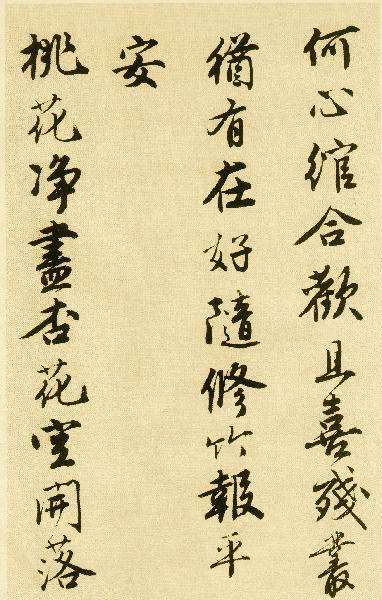 何心綰合歡且喜殘叢
猶有在好隨修竹報平
安
桃花净盡杏花空開落